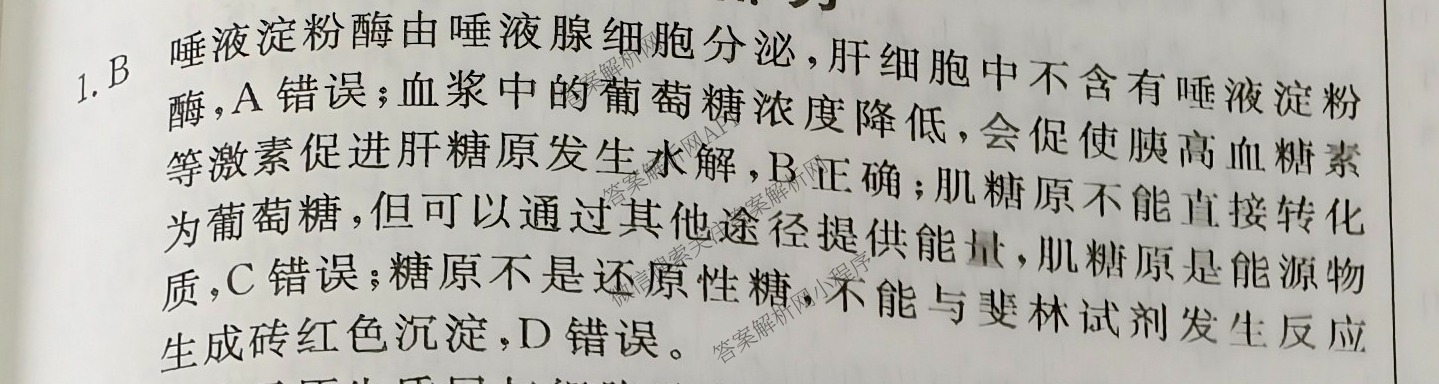 1.B 唾液淀粉酶由唾液腺细胞分泌,肝细胞中不含有唾液淀粉
酶,A错误;血浆中的葡萄糖浓度降低,会促使胰高血糖素
等激素促进肝糖原发生水解,B正确;肌糖原不能直接转化
为葡萄糖,但可以通过其他途径提供能量,肌糖原是能源物
质,C错误;糖原不是还原性糖,不能与斐林试剂发生反应
生成砖红色沉淀,D错误。